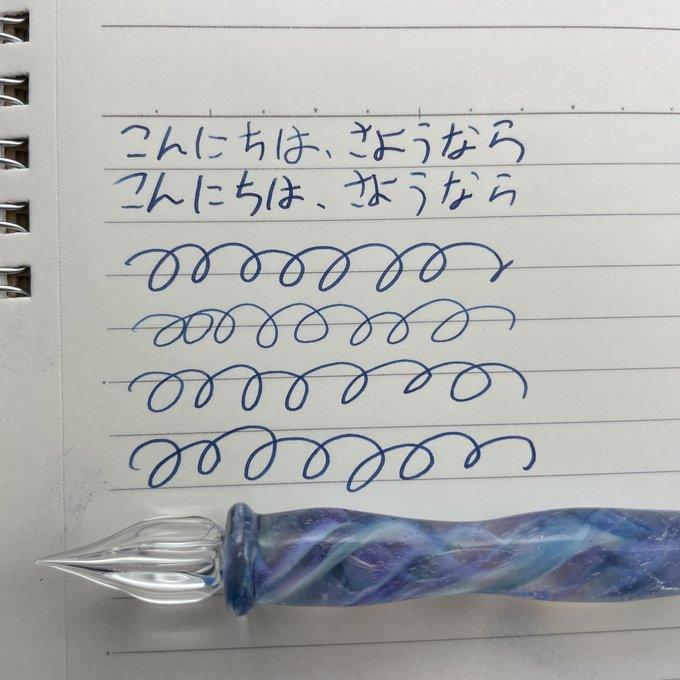 こんにちは、さようなら
こんにちは、さようなら